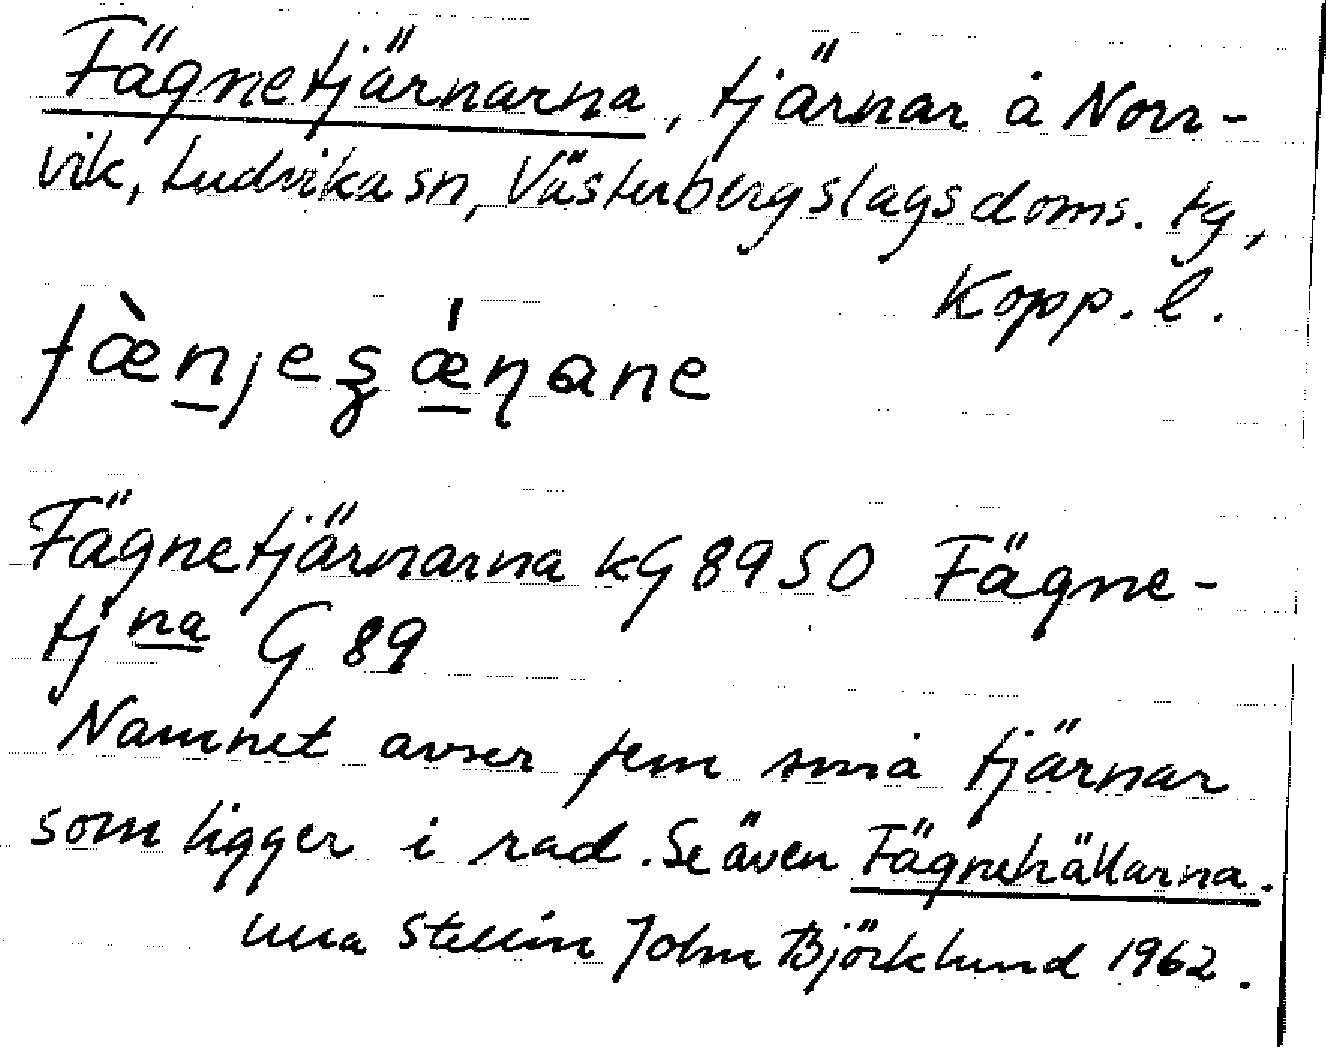 Fägnetjärnarna, tjärnar å Norr-
vik, Ludvika sn, Västerbergslags doms. tg,
Kopp. l.
fæ̀njeʂǽɳane
Fägnetjärnarna kG 89 SO Fägne-
tjna G 89
Namnet avser fem små tjärnar
som ligger i rad. Se även Fägnehällarna.
Stellin John Björklund 1962.